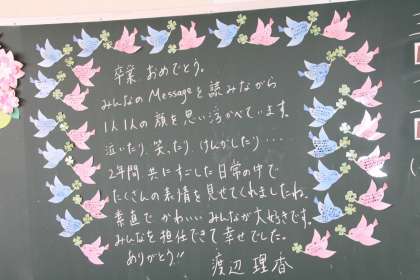 卒業 おめでとう。
みんなの Messageを 読みながら
1人1人の 顔を 思い浮かべています。
泣いたり、笑ったり、けんかしたり・・・・
2年間 共にすごした 日常の中で
たくさんの 表情を 見せてくれましたね。
素直で かわいい みんなが 大好きです。
みんなを 担任できて 幸せでした。
ありがとう!!
渡辺 理香